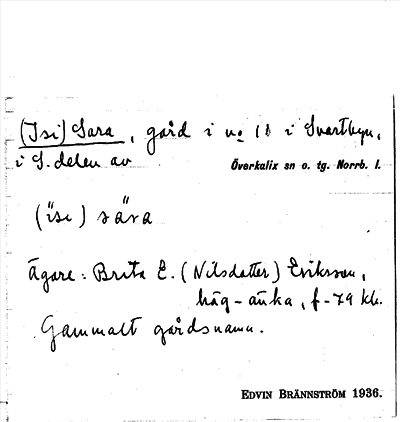 (Isi) Sara, gård i no 18 i Svartbyn,
i S. delen av Överkalix sn o. tg. Norrb. l.
(ise) sära
Ägare: Brita E. (Nilsdotter) Eriksson,
häg-änka, f-79 kh.
Gammalt gårdsnamn.
EDVIN BRÄNNSTRÖM 1936.